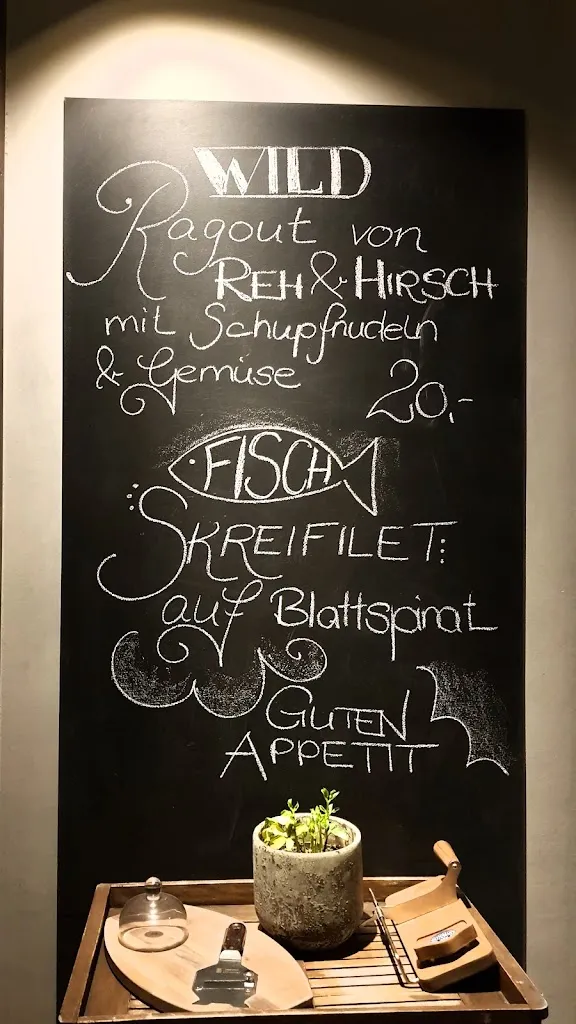 WILD
Ragout von
REH & HIRSCH
mit Schupfnudeln
& Gemüse 20,-
FISCH
SKREIFILET
auf Blattspinat
GUTEN
APPETIT